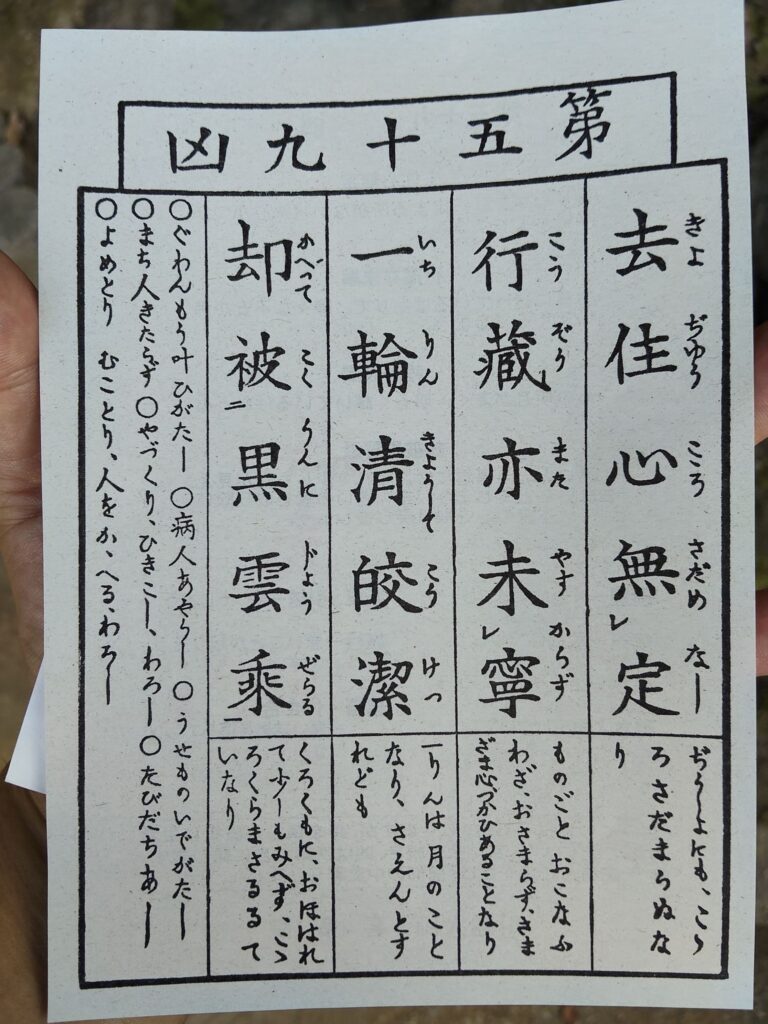 第五十九凶
去住心無レ定
きよぢゆうころさだめなし
行藏亦未レ寧
こうぞうまたやすからず
一輪清皎潔
いちりんきようしてこうけつ
却被二黒雲乘一
かへつてこくうんにじようぜらる
ぢうしよにも、こゝ
ろさだまらぬな
り
ものごとおこなふ
わざ、おさまらず、さま
ざま心づかひあることなり
一りんは月のこと
なり、さえんとす
れども
くろくもに、おほはれ
て少しもみへず、こゝ
ろくらまさるゝて
いなり
○ぐわんもう叶ひがたし ○病人あやうし ○うせものいでがたし
○まち人きたらず ○やづくり、ひきこし、わろし ○たびだちあしし
○よめとり むことり、人をかゝへる、わろし